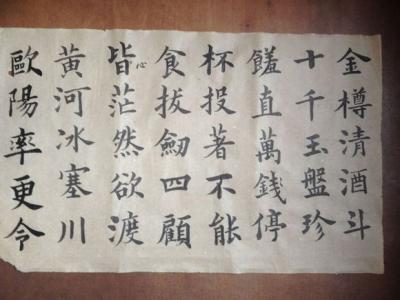 金樽清酒斗
十千玉盤珍
饈直萬錢停
杯投著不能
食拔劒四顧
皆心茫然欲渡
黄河冰塞川
歐陽率更令